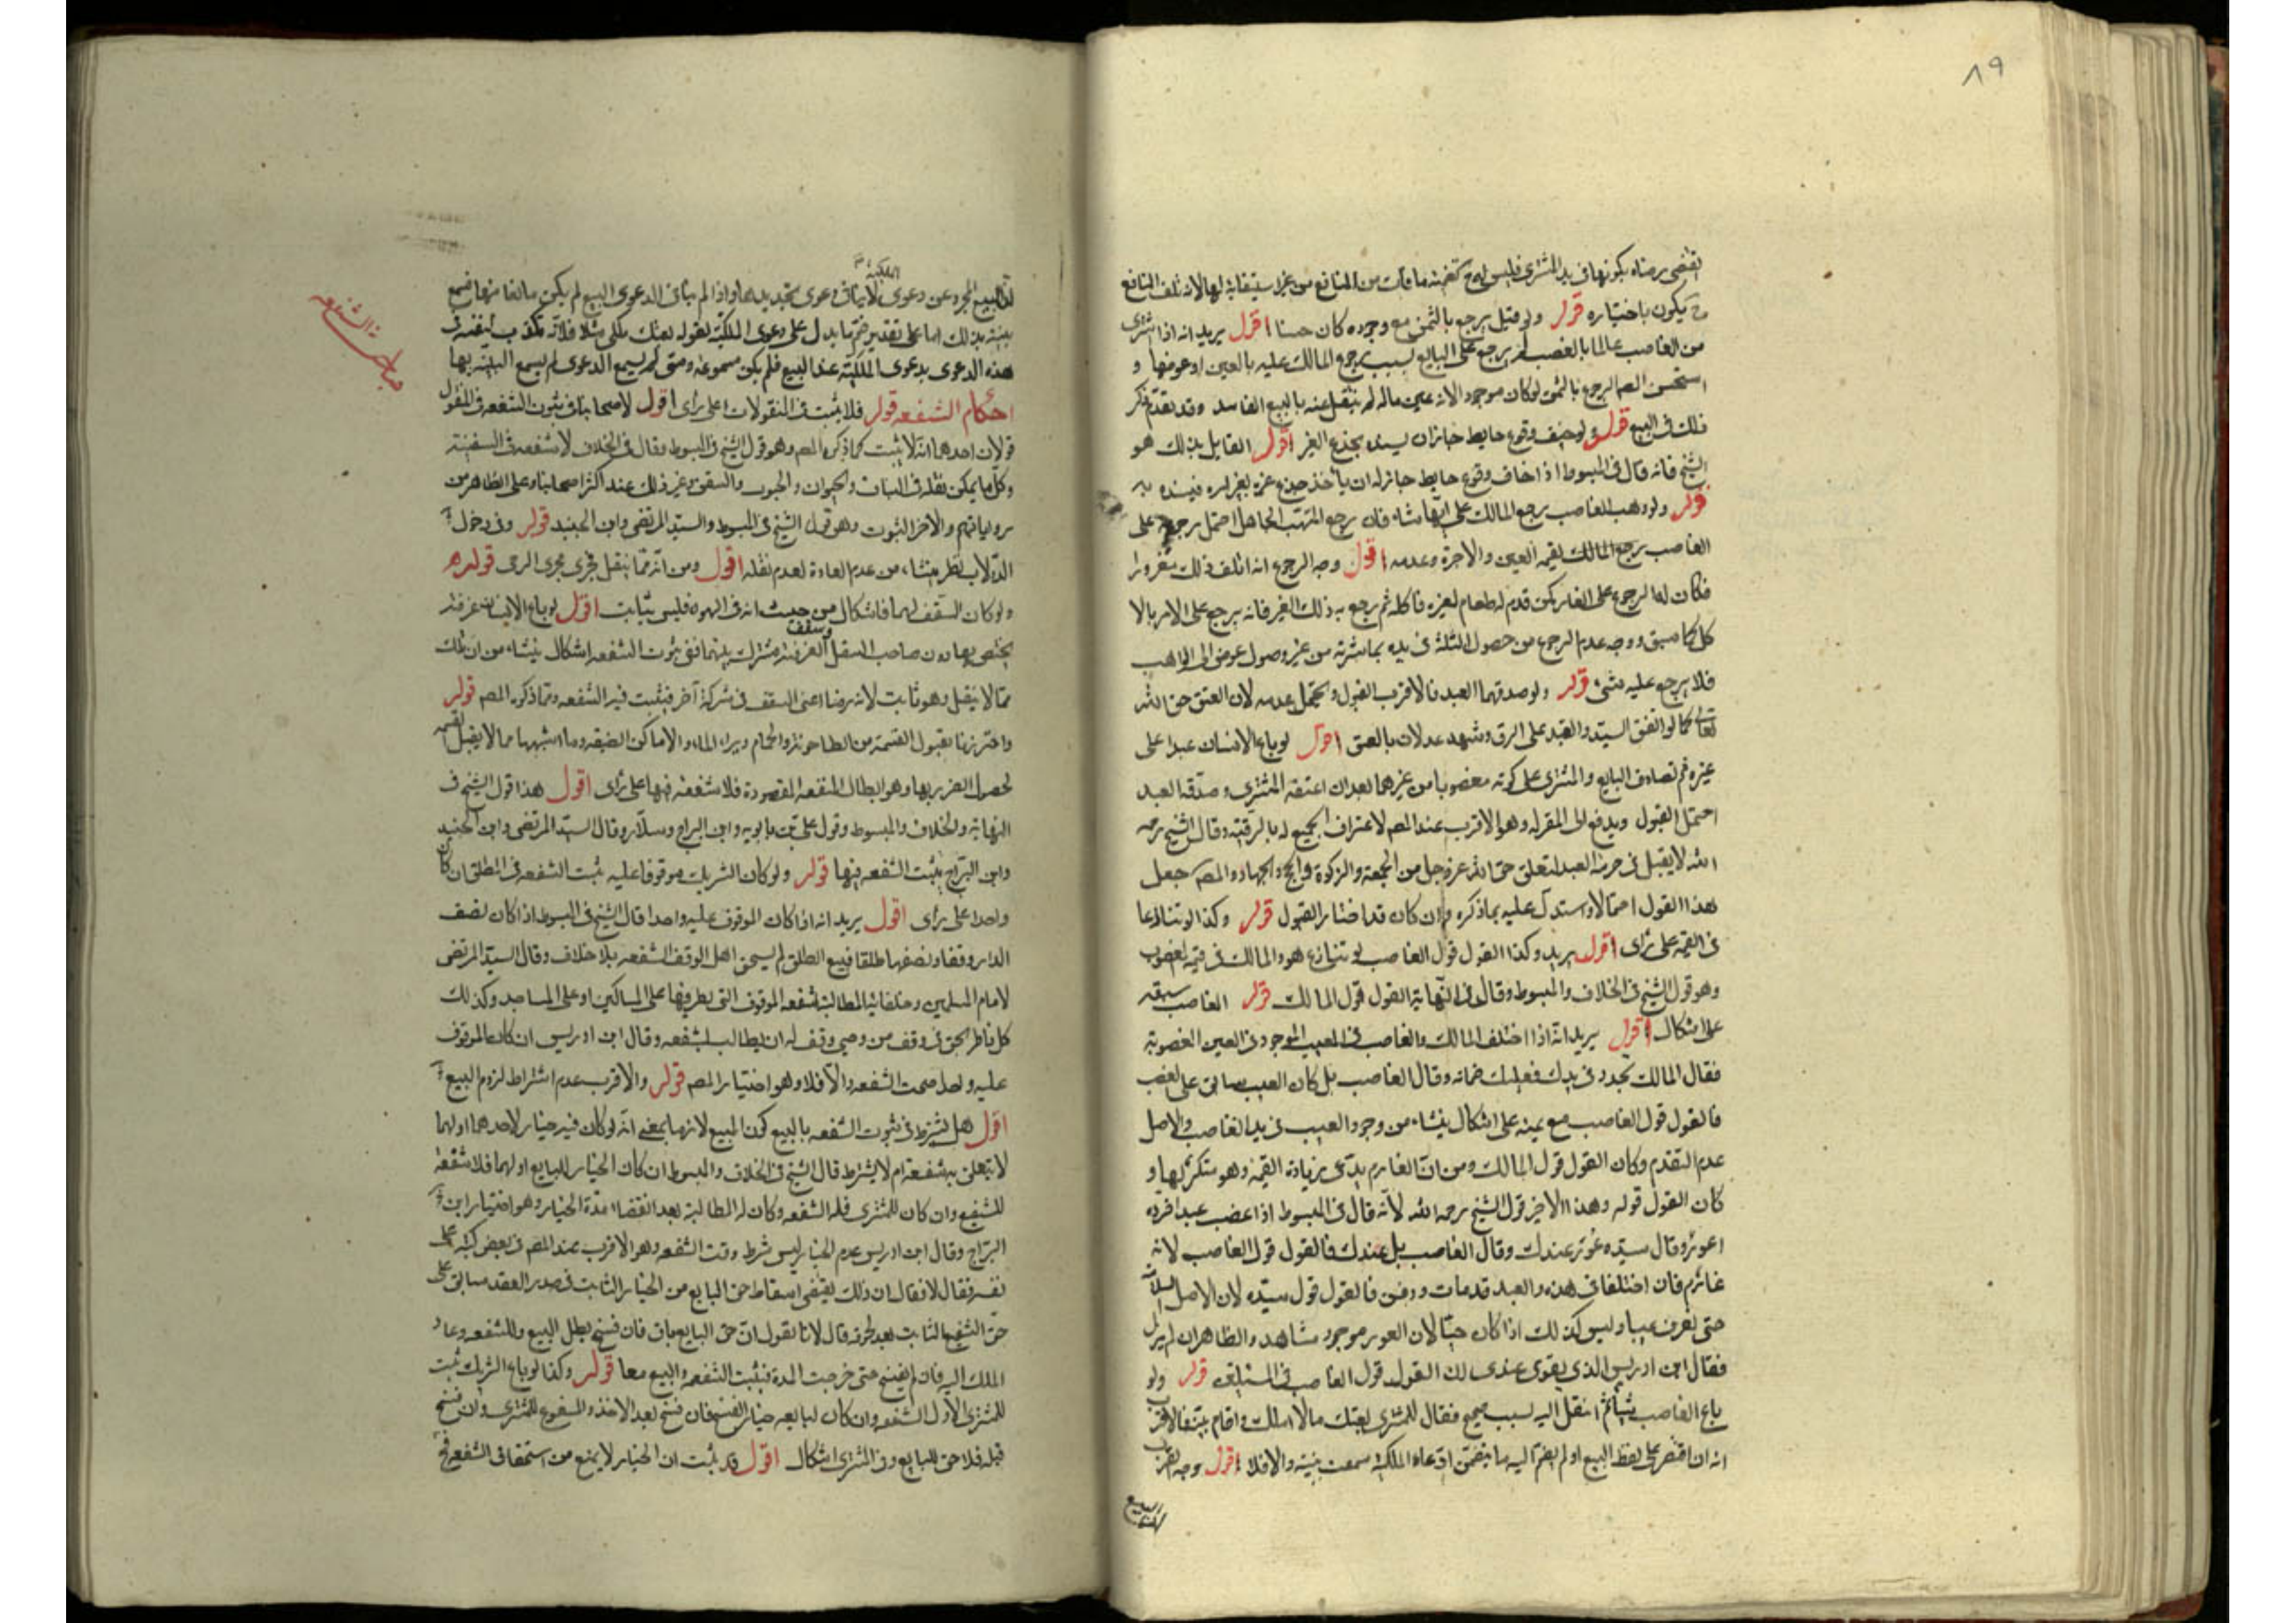 ٨٩
اقتضى رضاه بكونها في يد المشتري فليس له ح قيمة ما فات من المنافع من غير استيفائه لها لانه تلف المنافع
ح يكون باختياره قوله ولو قيل يرجع بالثمن مع وجوده كان حسنا اقول يريد انه اذا اشترى
من الغاصب عالما بالغصب لم يرجع على البايع بسبب رجوع المالك عليه بالعين او عوضها و
استحسن المص الرجوع بالثمن لو كان موجودا لانه عين ماله لم ينتقل عنه بالبيع الفاسد وقد تقدم ذكر
ذلك في البيع قوله ولو خيف وقوع حايط جاز ان يسند بجذع الغير اقول القايل بذلك هو
الشيخ فانه قال في المبسوط اذا خاف وقوع حايط جاز له ان يأخذ جذع غيره بغير امره فيسنده به
قوله ولو وهب الغاصب يرجع المالك على ايهما شاء فان رجع المتهب الجاهل احتمل رجوعه على
الغاصب يرجع المالك بقيمة العين والاجرة وعدمه اقول وجه الرجوع انه اتلف ذلك مغرورا
فكان له الرجوع على الغار كمن قدم له طعام لغيره فاكله ثم رجع به ذلك الغير فانه يرجع على الامر بالا
كل كما سبق ووجه عدم الرجوع من حصول التلف في يده بمباشرته من غير وصول عوض الى الواهب
فلا يرجع عليه بشئ قوله ولو صدقهما العبد فالاقرب القبول ويحتمل عدمه لان العتق حق الله
تعالى كما لو اتفق السيد والعبد على الرق وشهد عدلان بالعتق اقول لو باع الانسان عبدا على
غيره ثم تصادق البايع والمشتري على كونه مغصوبا من غيرهما بعد ان اعتقه المشتري وصدقه العبد
احتمل القبول ويدفع الى المقر له وهو الاقرب عند المص لاعتراف الجميع له بالرقية وقال الشيخ رحمه
الله لا يقبل في حرمة العبد لتعلق حق الله عز وجل من الجمعة والزكوة والحج والجهاد والمص جعل
هذا القول احتمالا واستدل عليه بما ذكره وان كان قد اختار القبول قوله وكذا لو تنازعا
في القيمة على رأى اقول يريد وكذا القول قول الغاصب لو تنازع هو والمالك في قيمة المغصوب
وهو قول الشيخ في الخلاف والمبسوط وقال في النهاية القول قول المالك قوله الغاصب سبقه
على اشكال اقول يريد انه اذا اختلف المالك والغاصب في العيب الموجود في العين المغصوبة
فقال المالك تجدد في يدك فعليك ضمانه وقال الغاصب بل كان العيب سابق على الغصب
فالقول قول الغاصب مع يمينه على اشكال ينشاء من وجود العيب في يد الغاصب والاصل
عدم التقدم وكان القول قول المالك ومن ان الغارم يدعى زيادة القيمة وهو منكر لها و
كان القول قوله وهذا الاخير قول الشيخ رحمه الله لانه قال في المبسوط اذا غصب عبدا فرده
اعور وقال سيده عور عندك وقال الغاصب بل عندك فالقول قول الغاصب لانه
غارم فان اختلفا في هذه والعبد قد مات ودفن فالقول قول سيده لان الاصل السلامة
حتى يعرف عيبا وليس كذلك اذا كان حيا لان العور موجود مشاهد والظاهر انه لم يزل
فقال ابن ادريس الذي يقوى عندى ان القول قول الغاصب في المسئلتين قوله ولو
باع الغاصب شيئا ثم انتقل اليه بسبب صحيح فقال للمشترى بعتك مالا املك واقام بينة فالاقرب
انه ان اقتصر على لفظ البيع او لم يضم اليه ما يتضمن ادعاء الملكية سمعت بينته والا فلا اقول وجه القرب
ان البيع
ان البيع المجرد عن دعوى الملكية لا ينافى دعوى تجديدها واذا لم يناف الدعوى البيع لم يكن مانعا منها فتسمع
بينته بذلك اما على تقدير ضم ما يدل على دعوى الملكية لقوله بعتك ملكى مثلا فلانه مكذب لبينته في
هذه الدعوى بدعوى الملكية عند البيع فلم يكن مسموعة ومتى لم يسمع الدعوى لم يسمع البينة بها
احكام الشفعه قوله فلا يثبت في المنقولات على رأى اقول لاصحابنا في ثبوت الشفعه في المنقول
قولان احدهما انه لا يثبت كما ذكره المص وهو قول الشيخ في المبسوط وقال في الخلاف لا شفعه في السفينة
وكل ما يمكن نقله في النبات والحيوان والحبوب والسفن وغير ذلك عند اكثر اصحابنا وعلى الظاهر من
رواياتهم والاخر الثبوت وهو قول الشيخ في المبسوط والسيد المرتضى وابن الجنيد قوله وفي دخول
الدولاب نظر ينشاء من عدم العادة لعدم نقله اقول ومن انه مما ينقل فجرى مجرى الرحى قوله
ولو كان السقف لهما فاشكال من حيث انه في الهواء فليس بثابت اقول لو باع الانسان غرفته
المختص بها دون صاحب السفل وسقف الغرفة مشترك بينهما ففي ثبوت الشفعه اشكال ينشاء من ان ذلك
مما لا ينقل وهو ثابت لانه ارضا اعنى السقف في شركة آخر فيثبت فيه الشفعه ومما ذكره المص قوله
واحترزنا بقبول القسمة من الطاحونة والحمام وبئر الماء والاماكن الضيقه وما اشبهها مما لا يقبل القسمه
لحصول الضرر بها وهو ابطال المنفعة المقصودة فلا شفعة فيها على رأى اقول هذا قول الشيخ في
النهاية والخلاف والمبسوط وقول على بن بابويه وابن البراج وسلار وقال السيد المرتضى وابن الجنيد
وابن البراج يثبت الشفعه فيها قوله ولو كان الشريك موقوفا عليه ثبت الشفعه في الطلق ان كان
واحدا على رأى اقول يريد انه اذا كان الموقوف عليه واحدا قال الشيخ في المبسوط اذا كان نصف
الدار وقفا ونصفها طلقا فبيع الطلق لم يستحق اهل الوقف الشفعه بلا خلاف وقال السيد المرتضى
لامام المسلمين وخلفائه المطالبة بشفعه الوقوف التى ينظر فيها على المساكين او على المساجد وكذلك
كل ناظر بحق في وقف من وصى وقف له ان يطالب بشفعه وقال ابن ادريس ان كان الموقوف
عليه واحد صحت الشفعه والا فلا وهو اختيار المص قوله والاقرب عدم اشتراط لزوم البيع
اقول هل يشترط في ثبوت الشفعه بالبيع كون المبيع لازما بمعنى انه لو كان فيه خيار لاحدهما او لهما
لا يتعلق به شفعه ام لا يشترط قال الشيخ في الخلاف والمبسوط ان كان الخيار للبايع او لهما فلا شفعة
للشفيع وان كان للمشترى فله الشفعه وكان له المطالبة بعد انقضاء مدة الخيار وهو اختيار ابن
البراج وقال ابن ادريس عدم الخيار ليس شرط وقت الشفعه وهو الاقرب عند المص في بعض كتبه على
نفسه فقال لا فقال ان ذلك يقتضى اسقاط حق البايع من الخيار الثابت في صدر العقد سابق على
حق الشفيع الثابت بعد لحوقه قال لانا نقول ان حق البايع باق فان فسخ بطل البيع والشفعه وعاد
الملك اليه فان لم يفسخ حتى خرجت المدة فيثبت الشفعه والبيع معا قوله وكذا لو باع الشريك ثبت
للمشترى الاول الشفعه وان كان لبايعه خيار الفسخ فان فسخ بعد الاخذ فالمشفوع للمشترى وان فسخ
قبله فلا حق للبايع وفي المشترى اشكال اقول قد يثبت ان الخيار لا يمنع من استحقاق الشفعه فح